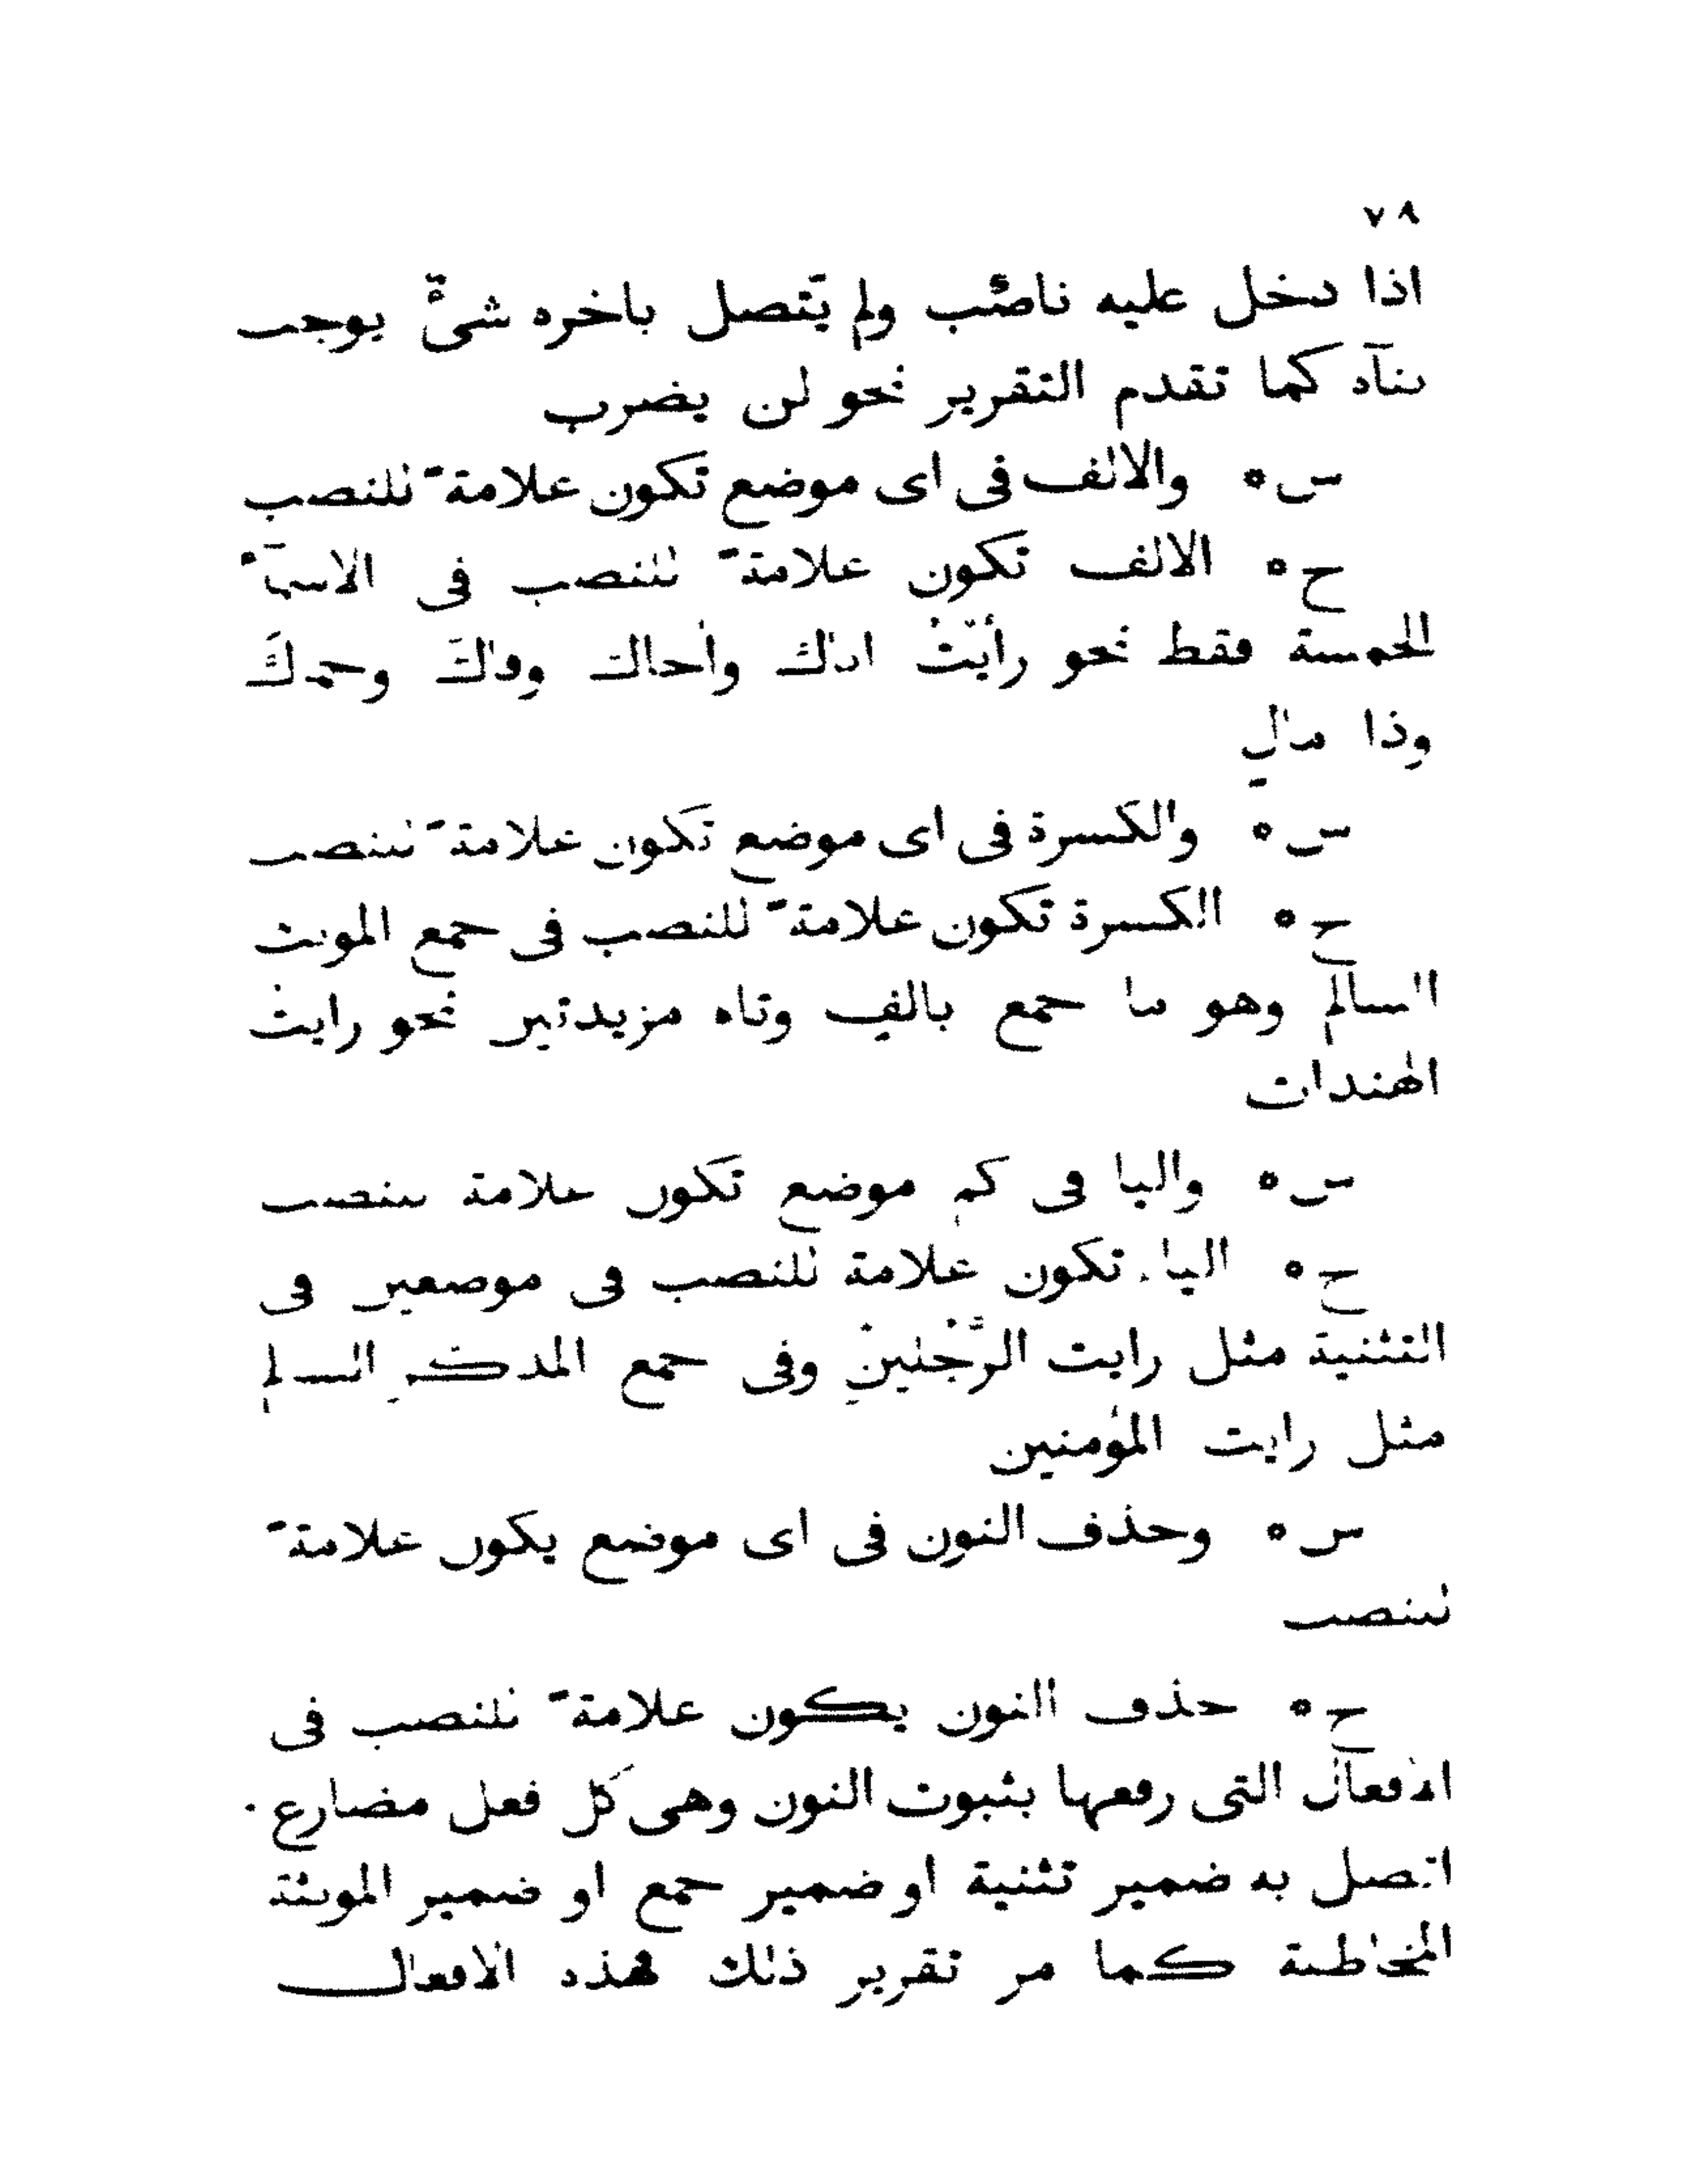 ٧٨
اذا دخل عليه ناصب ولم يتصل باخره شىء يوجب
بنآه كما تقدم التقرير نحو لن يضرب
س ٥ والالف فى اى موضع تكون علامةً للنصب
ج ٥ الالف تكون علامةً للنصب فى الاسمآء
الخمسة فقط نحو رأيتُ اباك واخاك وفاكَ وحماكَ
وذا مالٍ
س ٥ والكسرة فى اى موضع تكون علامةً للنصب
ج ٥ الكسرة تكون علامةً للنصب فى جمع المونث
السالم وهو ما جمع بالفٍ وتاء مزيدتين نحو رايت
الهندات
س ٥ واليا فى كم موضع تكون علامة للنصب
ج ٥ الياء تكون علامة للنصب فى موضعين فى
التثنية مثل رايت الرَّجُلينِ وفى جمع المذكر السالم
مثل رايت المؤمنين
س ٥ وحذف النون فى اى موضع يكون علامةً
للنصب
ج ٥ حذف النون يكون علامةً للنصب فى
الافعال التى رفعها بثبوت النون وهى كل فعل مضارع
اتصل به ضمير تثنية او ضمير جمع او ضمير المونثة
المخاطبة كما مر تقرير ذلك فهذه الافعال